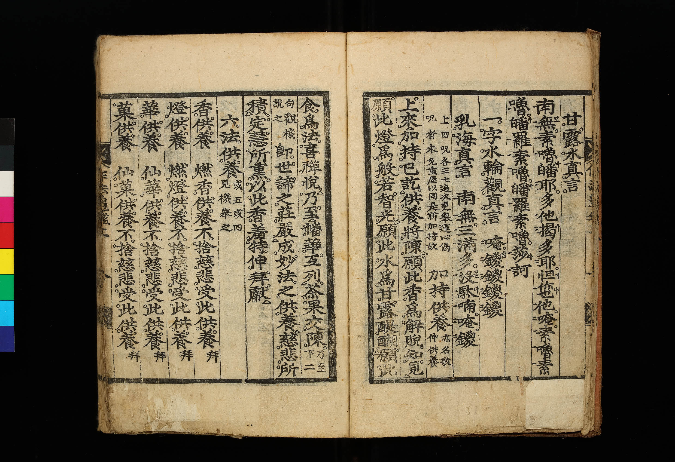 甘露水真言
南無素嚕皤耶多他揭多耶怛姪他唵素嚕素
嚕皤羅素嚕皤羅素嚕莎訶
一字水輪觀真言 唵鑁鑁鑁鑁
乳海真言 南無三滿多沒駄喃唵鑁
加持供養
上來加持已訖供養將陳願此香爲解脫知見
願此燈爲般若智光願此水爲甘露醍醐願此
食爲法喜禪悅乃至幡華互列茶果交陳
即世諦之莊嚴成妙法之供養慈悲所
積定慧所熏以此香羞特伸拜獻
六法供養
香供養 燃香供養不捨慈悲受此供養 拜
燈供養 燃燈供養不捨慈悲受此供養 拜
華供養 仙華供養不捨慈悲受此供養 拜
菓供養 仙菓供養不捨慈悲受此供養 拜